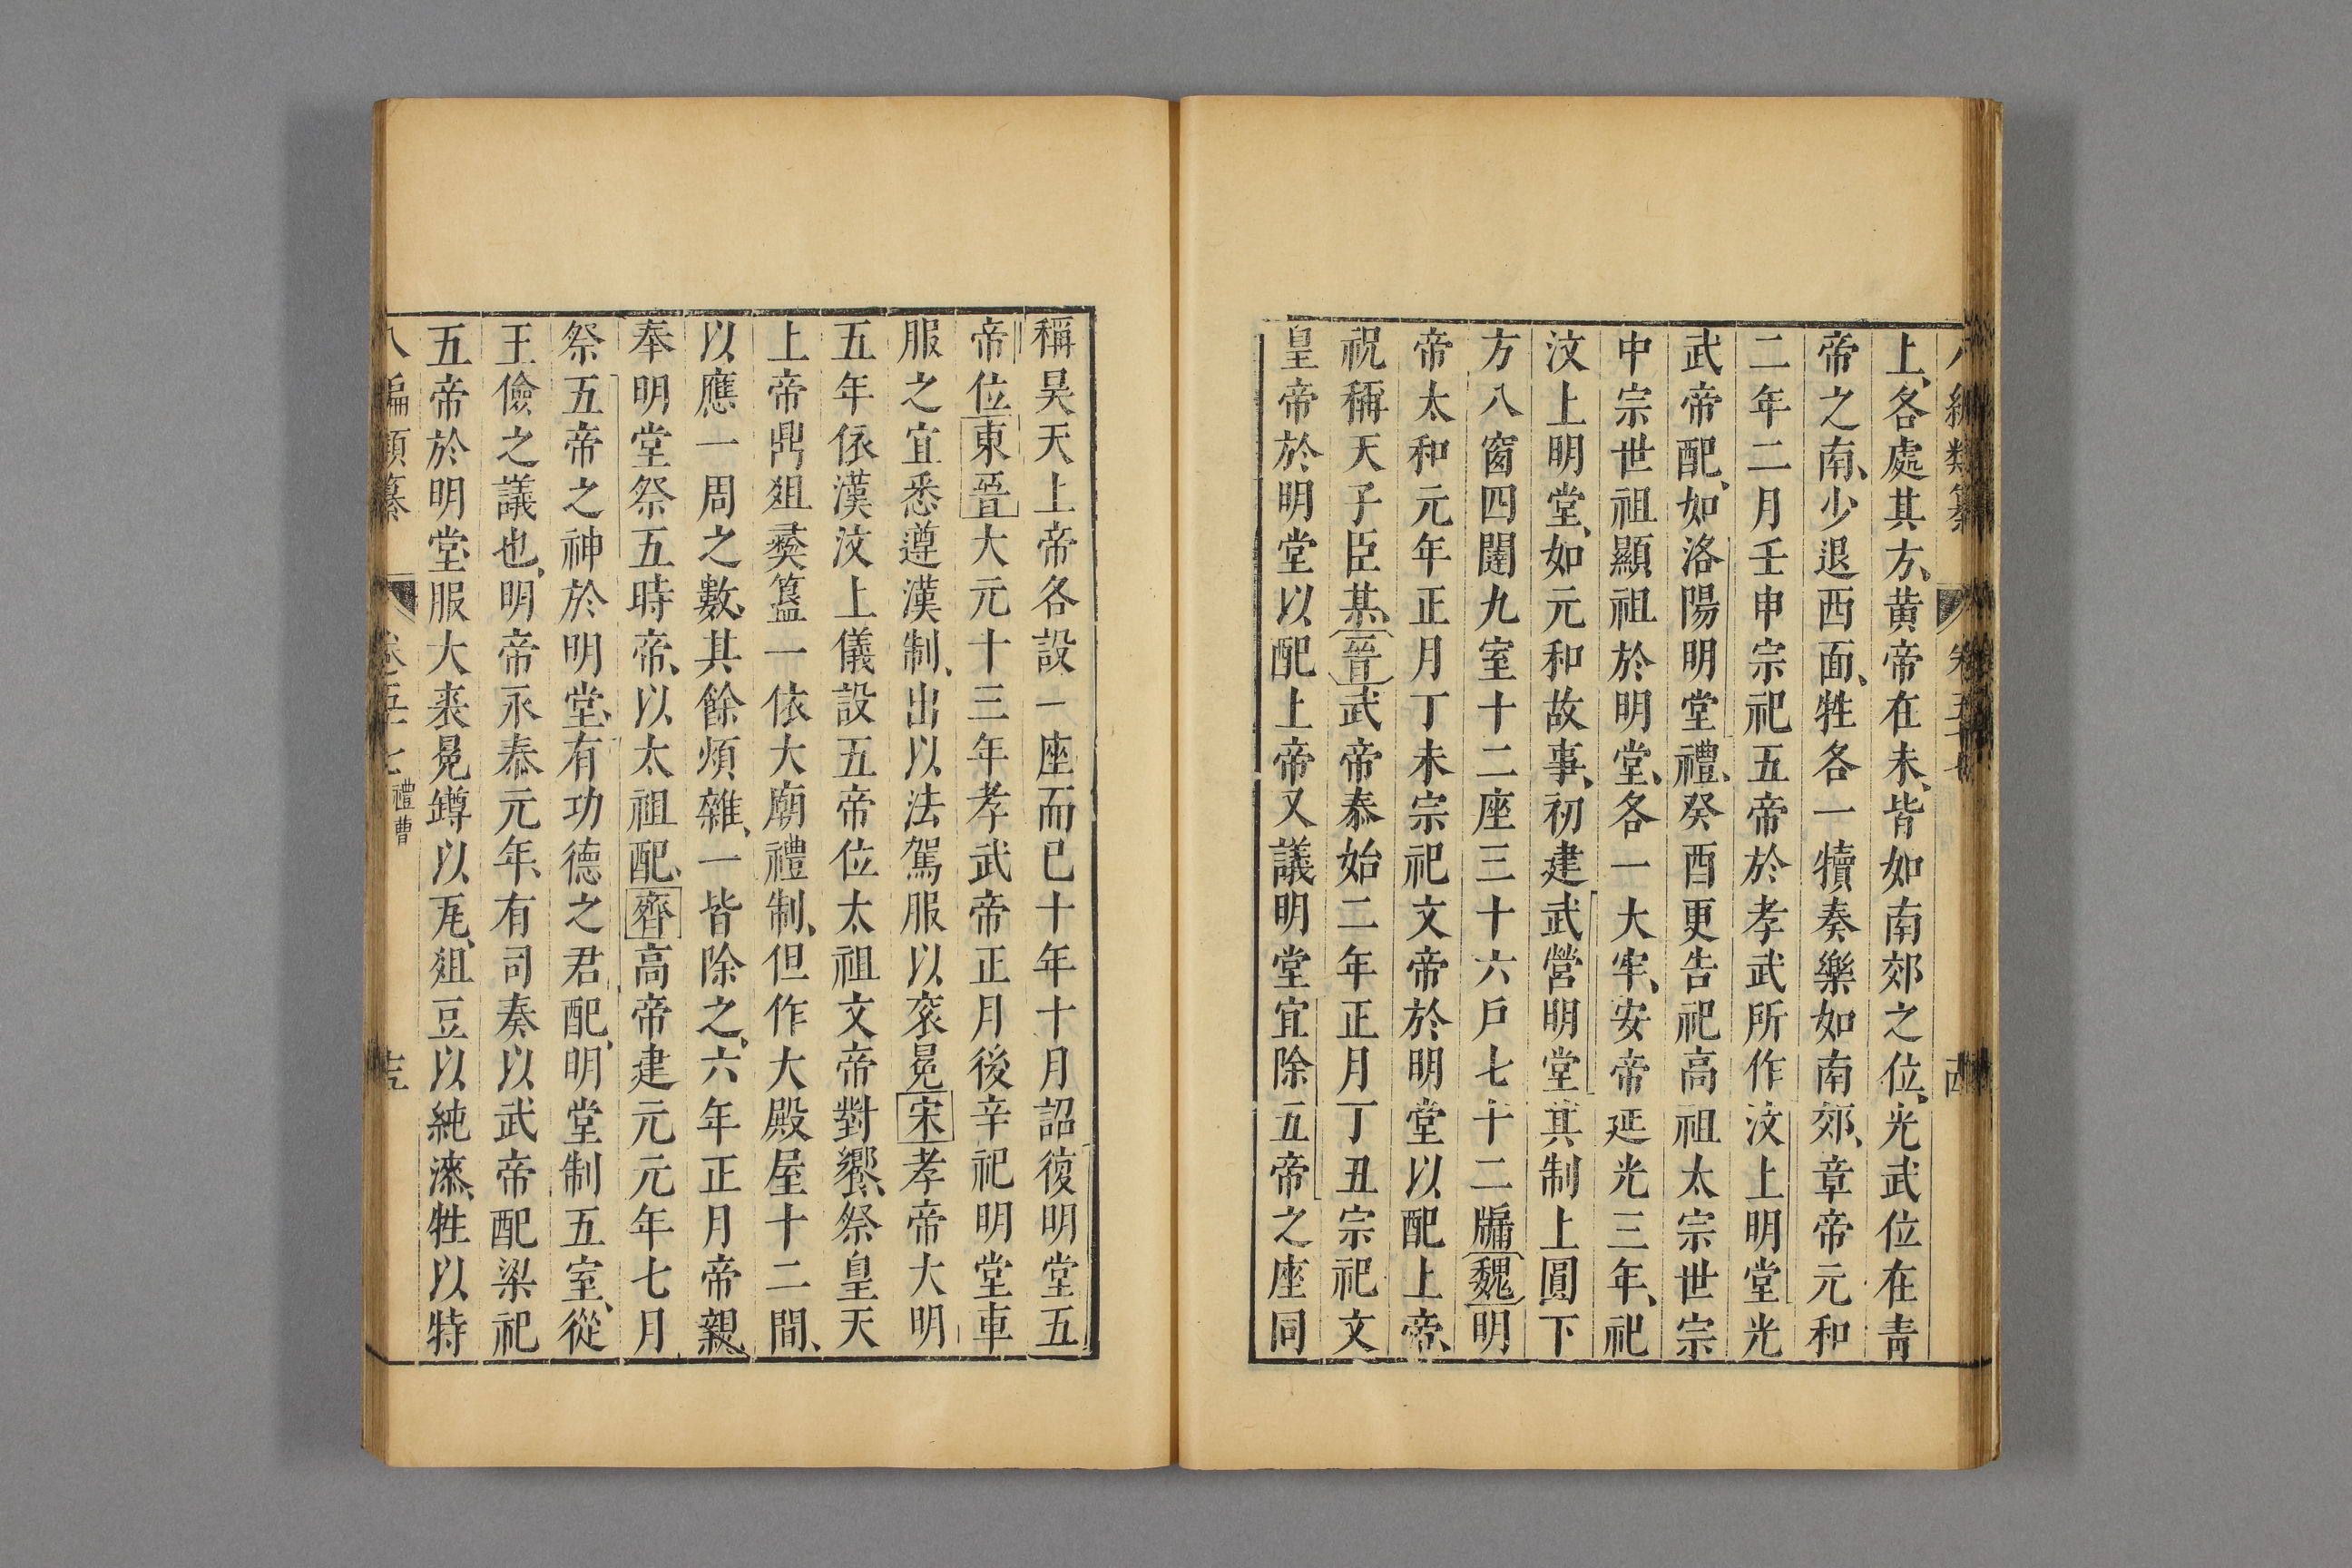 上各處其方黃帝在未皆如南郊之位光武位在靑
帝之南少退西面牲各一犢奏樂如南郊章帝元和
二年二月壬申宗祀五帝於孝武所作汶上明堂光
武帝配如洛陽明堂禮癸酉更告祀高祖太宗世宗
中宗世祖顯祖於明堂各一大牢安帝延光三年祀
汶上明堂如元和故事初建武營明堂其制上圓下
方八窗四闥九室十二座三十六戶七十二牖魏明
帝太和元年正月丁未宗祀文帝於明堂以配上帝
祝稱天子臣某晉武帝泰始二年正月丁丑宗祀文
皇帝於明堂以配上帝又議明堂宜除五帝之座同
稱昊天上帝各設一座而已十年十月詔復明堂五
帝位東晉大元十三年孝武帝正月後辛祀明堂車
服之宜悉遵漢制出以法駕服以袞冕宋孝帝大明
五年依漢汶上儀設五帝位太祖文帝對饗祭皇天
上帝鼎俎彝簋一依大廟禮制但作大殿屋十二間
以應一周之數其餘煩雜一皆除之六年正月帝親
奉明堂祭五時帝以太祖配齊高帝建元元年七月
祭五帝之神於明堂有功德之君配明堂制五室從
王儉之議也明帝永泰元年有司奏以武帝配梁祀
五帝於明堂服大裘冕罇以瓦俎豆以純漆牲以特
禮曹